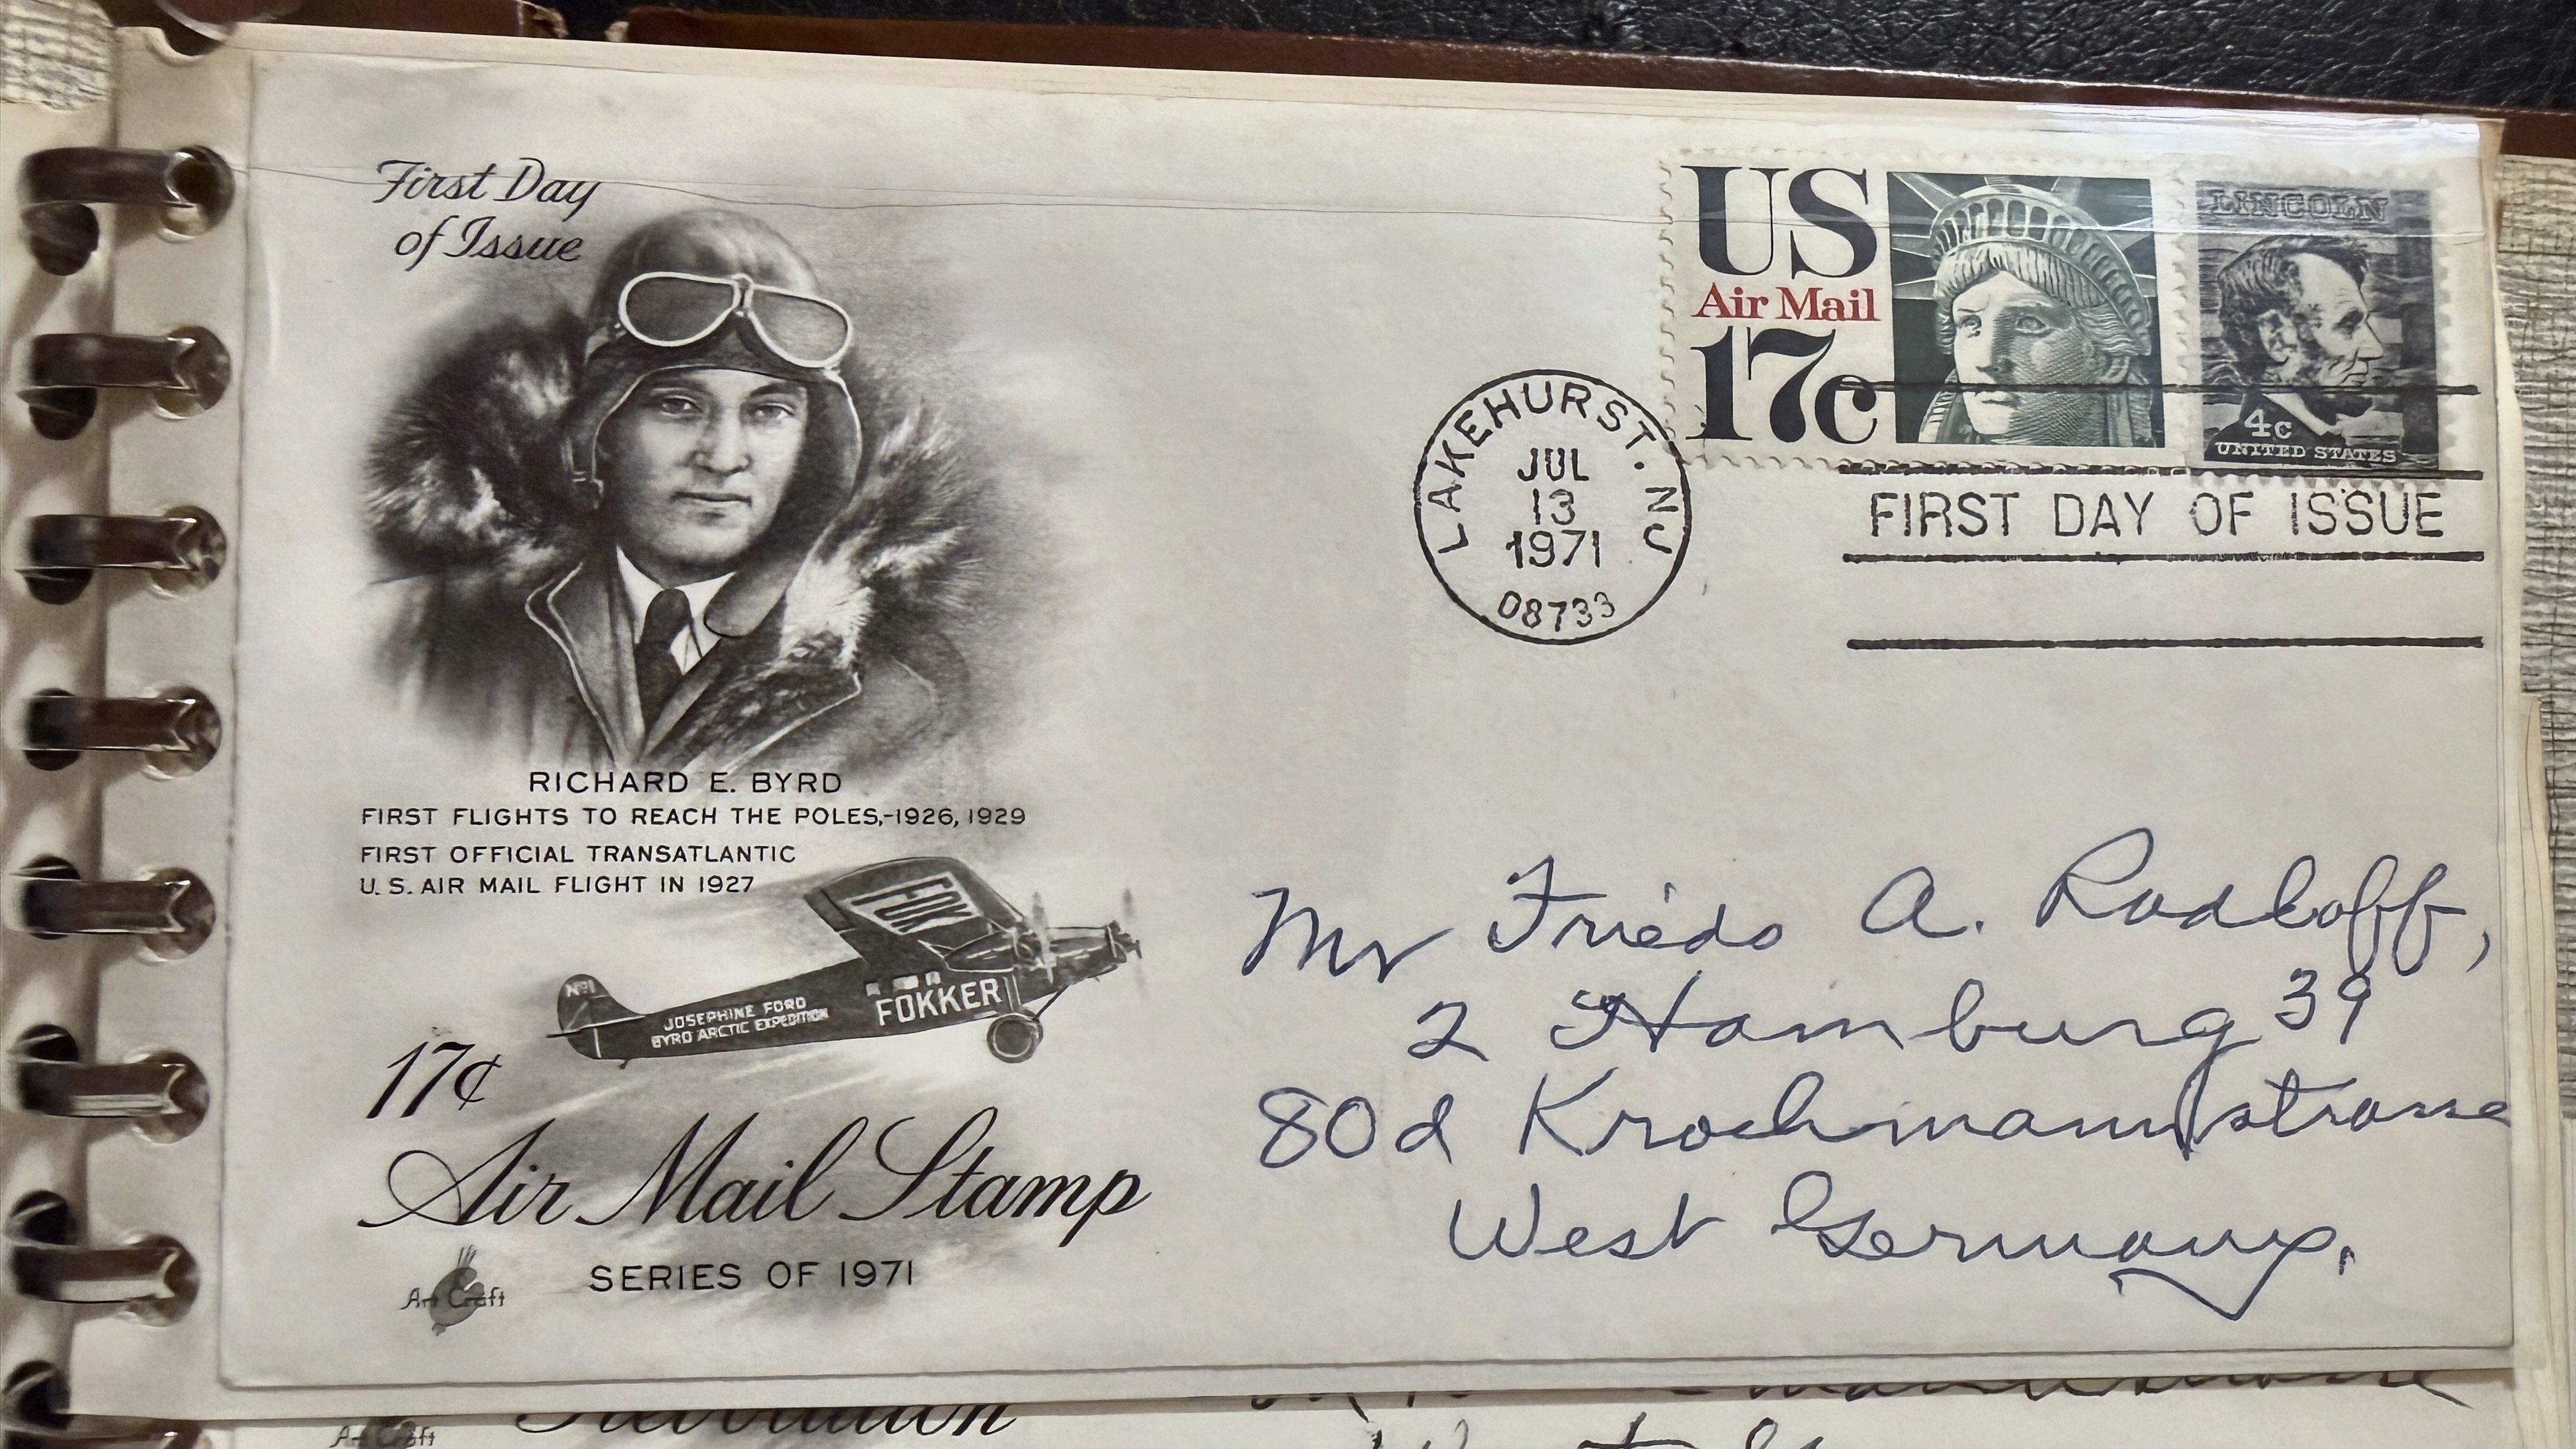 First Day
of Issue
RICHARD E. BYRD
FIRST FLIGHTS TO REACH THE POLES,-1926, 1929
FIRST OFFICIAL TRANSATLANTIC
U. S. AIR MAIL FLIGHT IN 1927
FOK
Nº1
JOSEPHINE FORD
BYRD ARCTIC EXPEDITION
FOKKER
17¢
Air Mail Stamp
SERIES OF 1971
Art Craft
US
Air Mail
17c
LINCOLN
4c
UNITED STATES
LAKEHURST. NJ
JUL
13
1971
08733
FIRST DAY OF ISSUE
Mr Friedo A. Radloff,
2 Hamburg 39
80d Krochmannstrasse
West Germany.
Art Craft